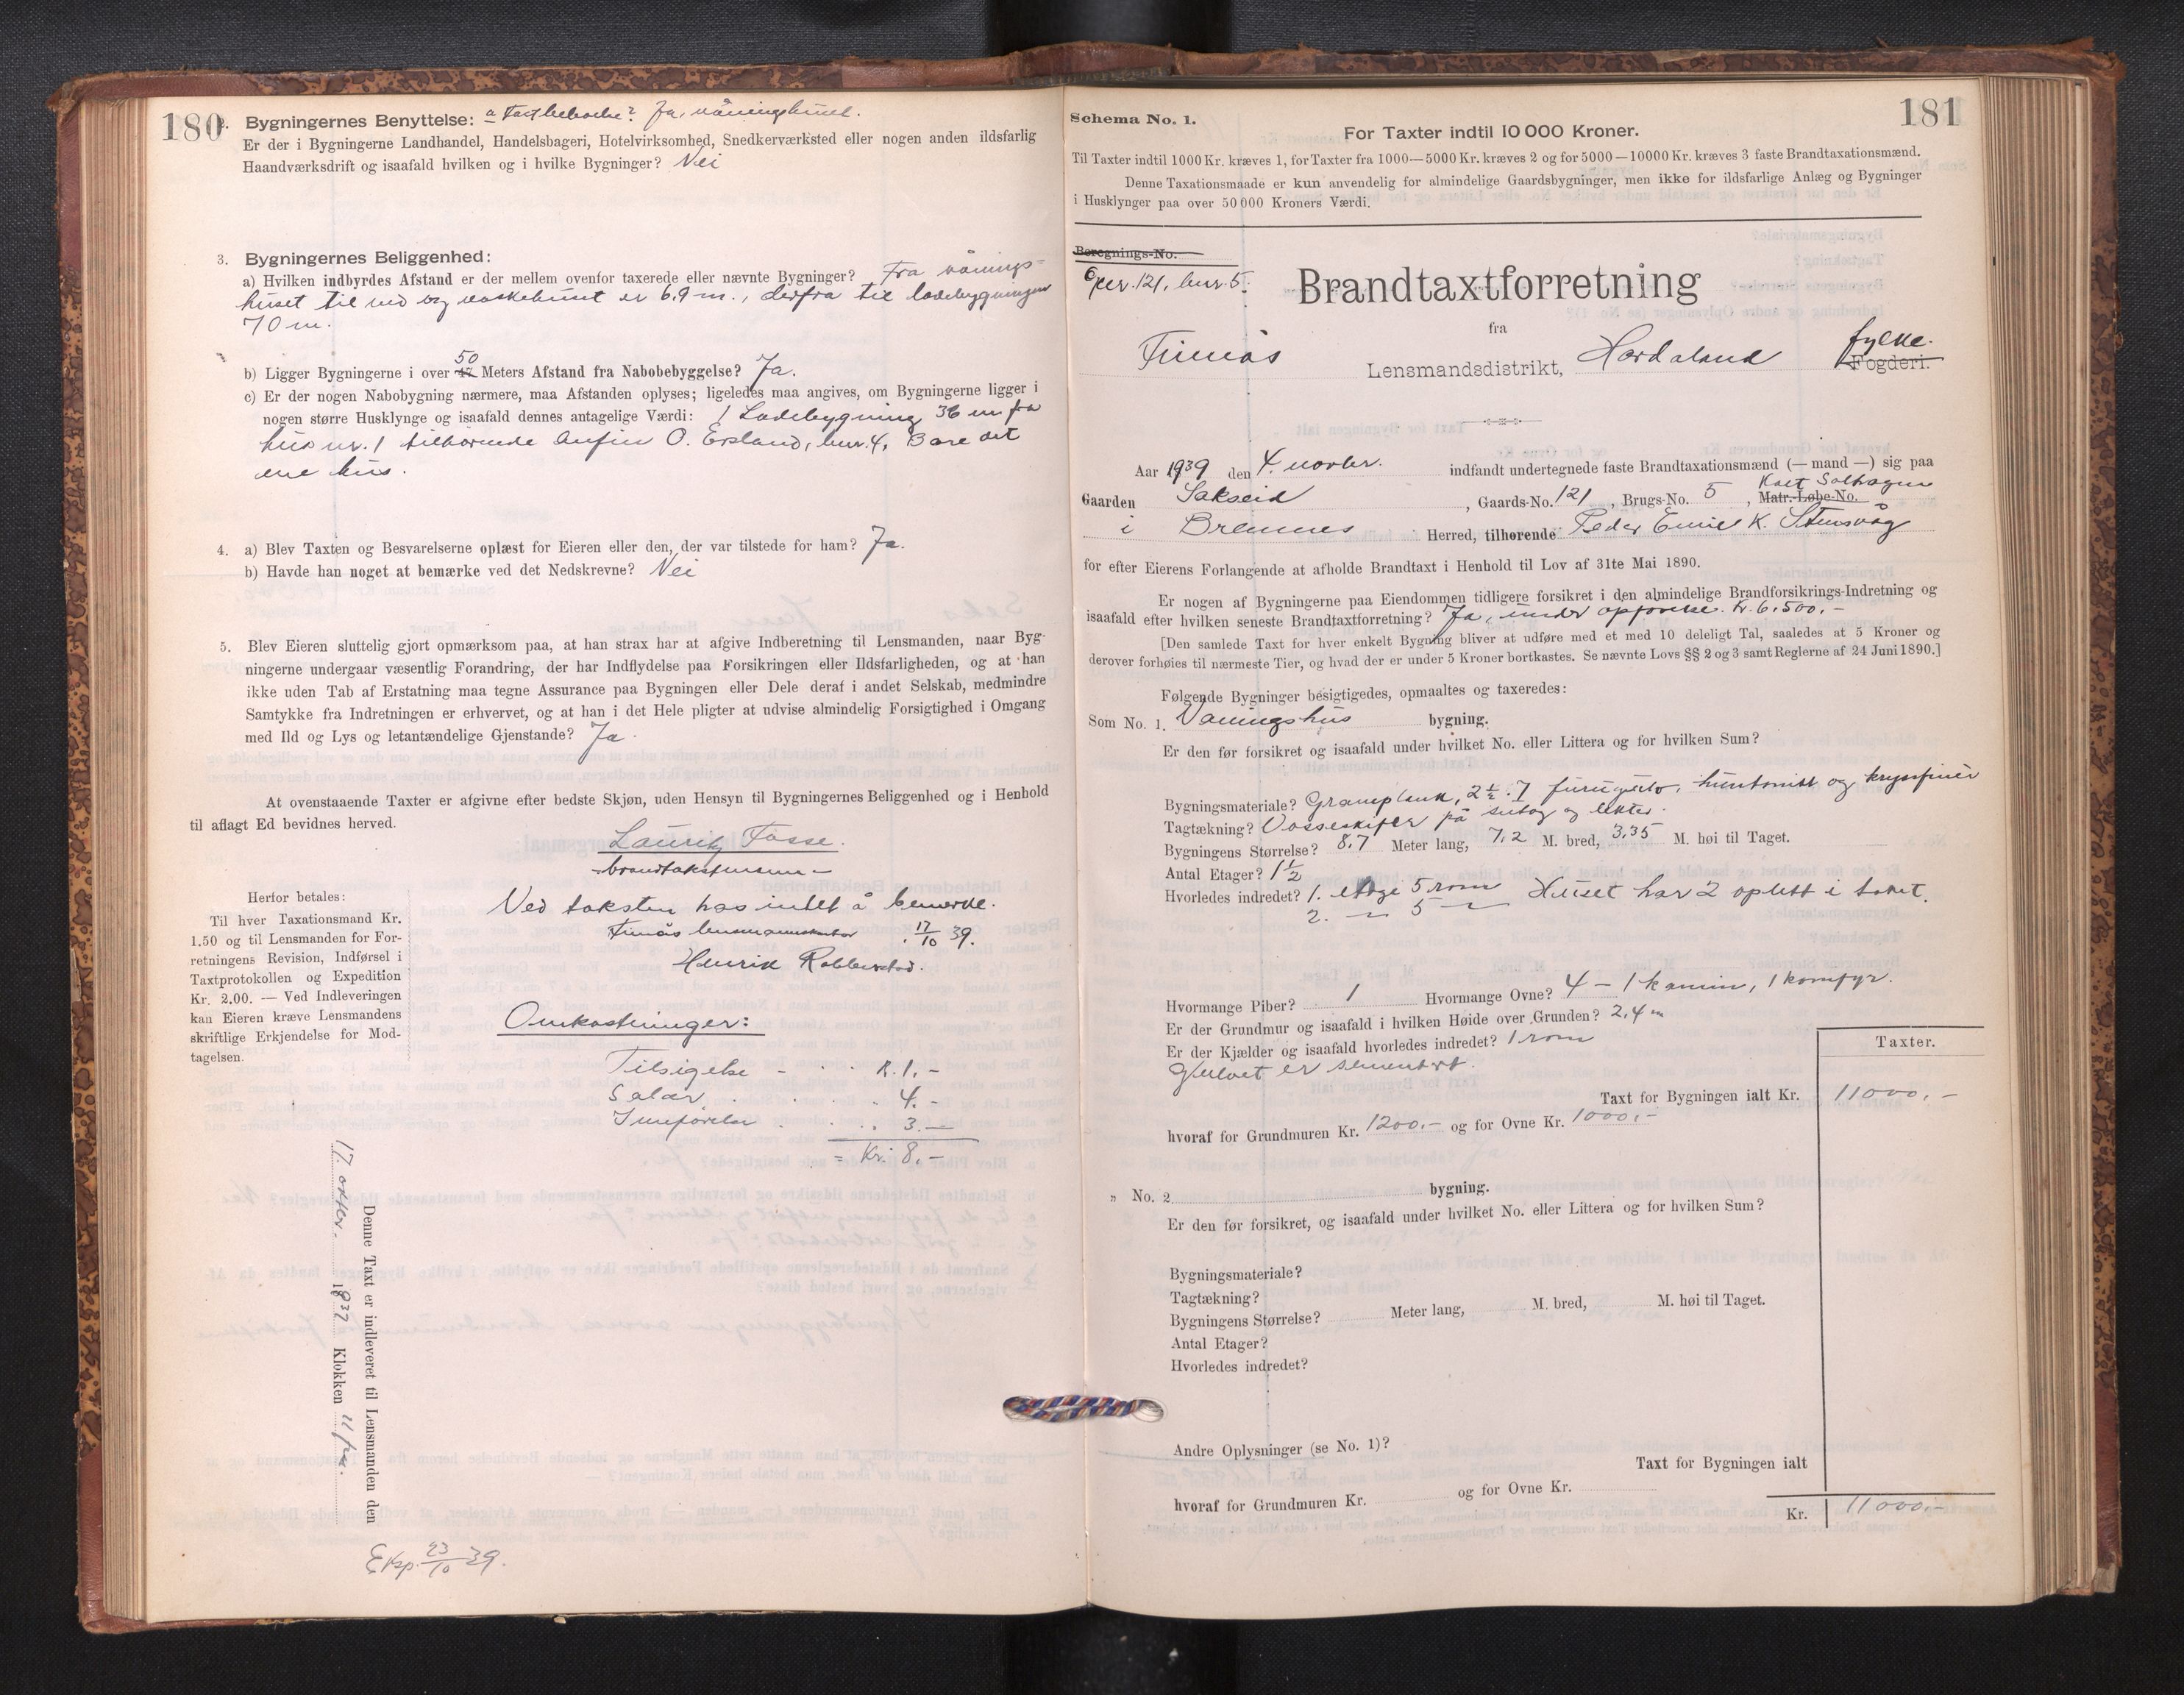 180
2. Bygningernes Benyttelse: a Fastbeboelse? Ja, våningshuset.
Er der i Bygningerne Landhandel, Handelsbageri, Hotelvirksomhed, Snedkerværksted eller nogen anden ildsfarlig
Haandværksdrift og isaafald hvilken og i hvilke Bygninger? Nei
3. Bygningernes Beliggenhed:
a) Hvilken indbyrdes Afstand er der mellem ovenfor taxerede eller nævnte Bygninger? Fra vånings-
huset til ved og vaskehuset er 6,9 m., derfra til ladebygningen
70 m.
b) Ligger Bygningerne i over 50 Meters Afstand fra Nabobebyggelse? Ja.
c) Er der nogen Nabobygning nærmere, maa Afstanden oplyses; ligeledes maa angives, om Bygningerne ligger i
nogen større Husklynge og isaafald dennes antagelige Værdi: 1 Ladebygning 36 m fra
hus nr. 1 tilhørende Anfin O. Ersland, bnr. 4, Bare det
ene hus.
4. a) Blev Taxten og Besvarelserne oplæst for Eieren eller den, der var tilstede for ham? Ja.
b) Havde han noget at bemærke ved det Nedskrevne? Nei
5. Blev Eieren sluttelig gjort opmærksom paa, at han strax har at afgive Indberetning til Lensmanden, naar Byg-
ningerne undergaar væsentlig Forandring, der har Indflydelse paa Forsikringen eller Ildsfarligheden, og at han
ikke uden Tab af Erstatning maa tegne Assurance paa Bygningen eller Dele deraf i andet Selskab, medmindre
Samtykke fra Indretningen er erhvervet, og at han i det Hele pligter at udvise almindelig Forsigtighed i Omgang
med Ild og Lys og letantændelige Gjenstande? Ja.
At ovenstaaende Taxter er afgivne efter bedste Skjøn, uden Hensyn til Bygningernes Beliggenhed og i Henhold
til aflagt Ed bevidnes herved.
Lauritz Fosse.
- brandtakstmann -
Herfor betales:
Til hver Taxationsmand Kr.
1.50 og til Lensmanden for For-
retningens Revision, Indførsel i
Taxtprotokollen og Expedition
Kr. 2.00. — Ved Indleveringen
kan Eieren kræve Lensmandens
skriftlige Erkjendelse for Mod-
tagelsen.
Ved taksten has intet å bemerke.
Finnås lensmannskontor 17/10 39.
Henrik Robberstad.
Omkostninger:
Tilsigelse - . . K. 1,-
Salær . . . . 4.-
Innførelse . . . 3.—
= Kr. 8,-
Denne Taxt er indleveret til Lensmanden den
17. oktbr. 1939 Klokken 11 fm.
Eksp. 23/10 39.
181
Schema No. 1.
For Taxter indtil 10 000 Kroner.
Til Taxter indtil 1000 Kr. kræves 1, for Taxter fra 1000—5000 Kr. kræves 2 og for 5000—10000 Kr. kræves 3 faste Brandtaxationsmænd.
Denne Taxationsmaade er kun anvendelig for almindelige Gaardsbygninger, men ikke for ildsfarlige Anlæg og Bygninger
i Husklynger paa over 50 000 Kroners Værdi.
Beregnings-No.
Gnr. 121, bnr. 5.
Brandtaxtforretning
fra
Finnås Lensmandsdistrikt, Hordaland fylke.
Fogderi.
Aar 1939 den 4. novbr. indfandt undertegnede faste Brandtaxationsmænd (— mand —) sig paa
Gaarden Sakseid, Gaards-No. 121, Brugs-No. 5, Matr.-Løbe-No. Kalt Solhagen
i Bremnes Herred, tilhørende Peder Emil K. Stensvåg
for efter Eierens Forlangende at afholde Brandtaxt i Henhold til Lov af 31te Mai 1890.
Er nogen af Bygningerne paa Eiendommen tidligere forsikret i den almindelige Brandforsikrings-Indretning og
isaafald efter hvilken seneste Brandtaxtforretning? Ja, under opførelse. Kr. 6.500,-
[Den samlede Taxt for hver enkelt Bygning bliver at udføre med et med 10 deleligt Tal, saaledes at 5 Kroner og
derover forhøies til nærmeste Tier, og hvad der er under 5 Kroner bortkastes. Se nævnte Lovs §§ 2 og 3 samt Reglerne af 24 Juni 1890.]
Følgende Bygninger besigtigedes, opmaaltes og taxeredes:
Som No. 1. Våningshus bygning.
Er den før forsikret og isaafald under hvilket No. eller Littera og for hvilken Sum?
Bygningsmateriale? Granplank, 2½ . 7 furugulv, huntonitt og kryssfiner
Tagtækning? Vosseskifer på sutag og lekter.
Bygningens Størrelse? 8,7 Meter lang, 7,2 M. bred, 3,35 M. høi til Taget.
Antal Etager? 1½
Hvorledes indredet? 1. etage 5 rom Huset har 2 oplett i taket.
2. — 5 —
Hvormange Piber? 1 Hvormange Ovne? 4 - 1 kamin, 1 komfyr.
Er der Grundmur og isaafald i hvilken Høide over Grunden? 2,4 m
Er der Kjælder og isaafald hvorledes indredet? 1 rom
Gulvet er sementert.
Taxter.
Taxt for Bygningen ialt Kr. 11000,-
hvoraf for Grundmuren Kr. 1200,- og for Ovne Kr. 1000,-
„ No. 2 bygning.
Er den før forsikret, og isaafald under hvilket No. eller Littera og for hvilken Sum?
Bygningsmateriale?
Tagtækning?
Bygningens Størrelse? Meter lang, M. bred, M. høi til Taget.
Antal Etager?
Hvorledes indredet?
Andre Oplysninger (se No. 1)?
Taxt for Bygningen ialt
hvoraf for Grundmuren Kr. og for Ovne Kr.
Kr. 11000,-